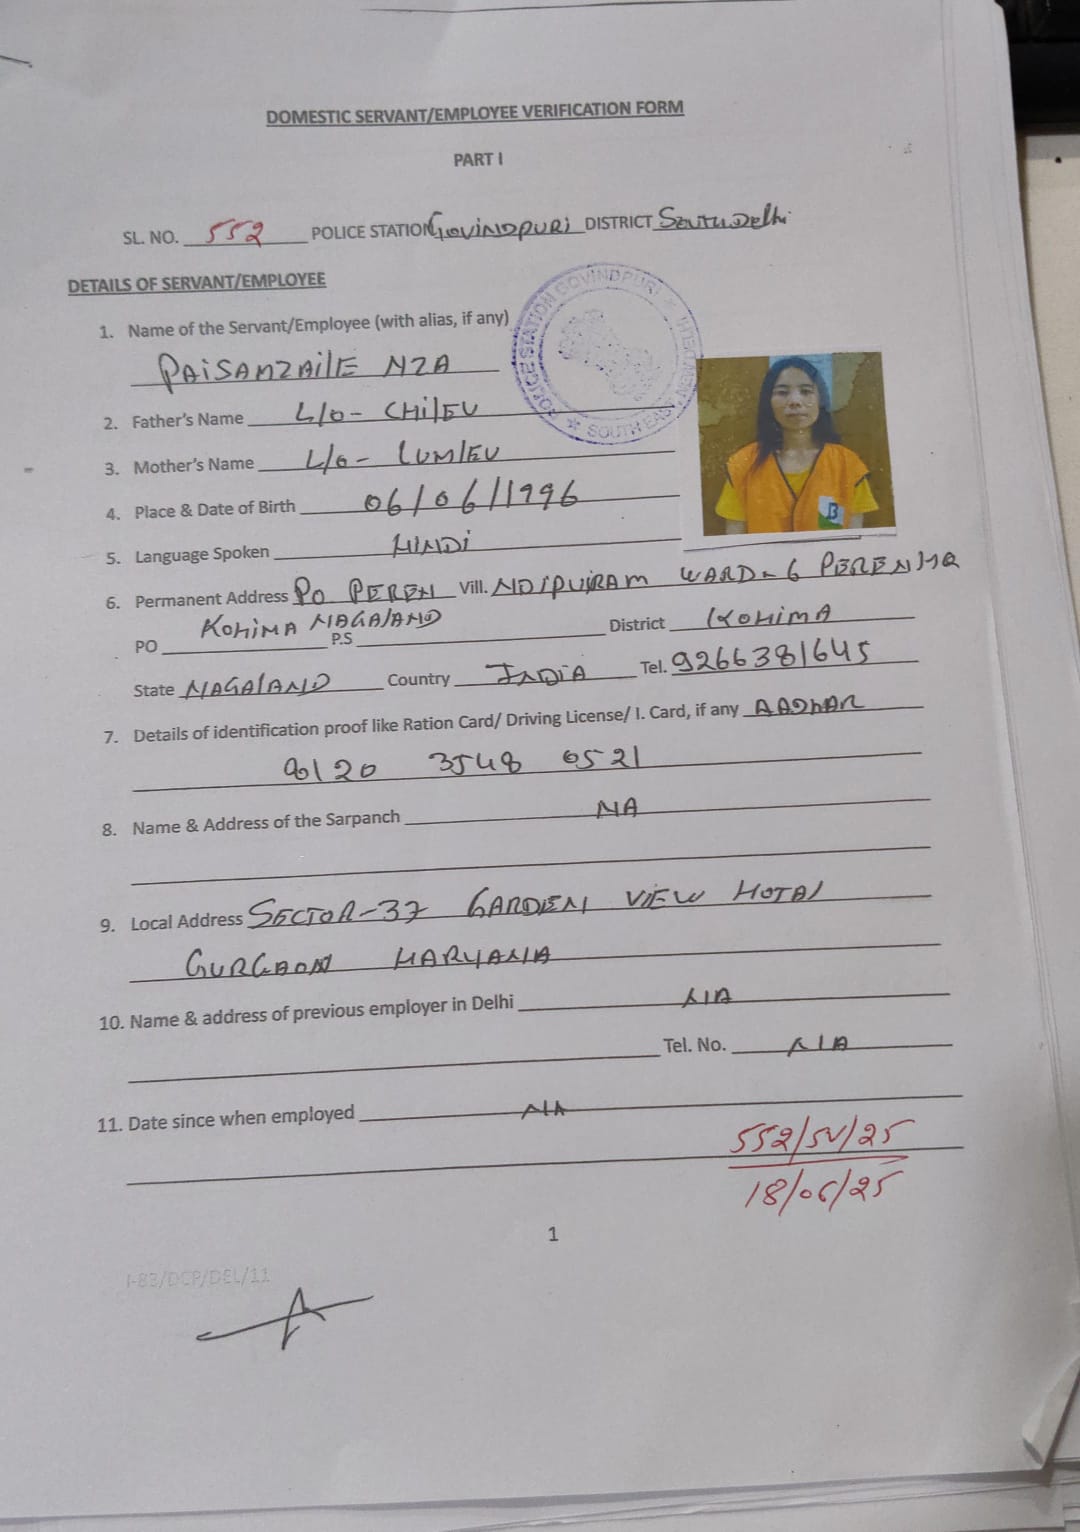 DOMESTIC SERVANT/EMPLOYEE VERIFICATION FORM
PART I
SL. NO. 552 POLICE STATION GOVINDPURI DISTRICT South Delhi
DETAILS OF SERVANT/EMPLOYEE
POLICE STATION GOVINDPURI
SOUTH EAST, NEW DELHI
1. Name of the Servant/Employee (with alias, if any)
PAISANZAILE NZA
2. Father's Name L/o- CHILEU
3. Mother's Name L/o- LUMLEU
4. Place & Date of Birth 06/06/1996
5. Language Spoken HINDI
6. Permanent Address PO PEREN Vill. WARD-6
PO KOHIMA NAGALAND P.S District KOHIMA
State NAGALAND Country INDIA Tel. 9266381645
7. Details of identification proof like Ration Card/ Driving License/ I. Card, if any AADHAR
3548 0521
8. Name & Address of the Sarpanch NA
9. Local Address SECTOR-37 GARDEN VIEW HOTAL
GURGAON HARYANA
10. Name & address of previous employer in Delhi NA
Tel. No. NA
11. Date since when employed NA
552/SV/25
18/06/25
1
I-83/DCP/DEL/11